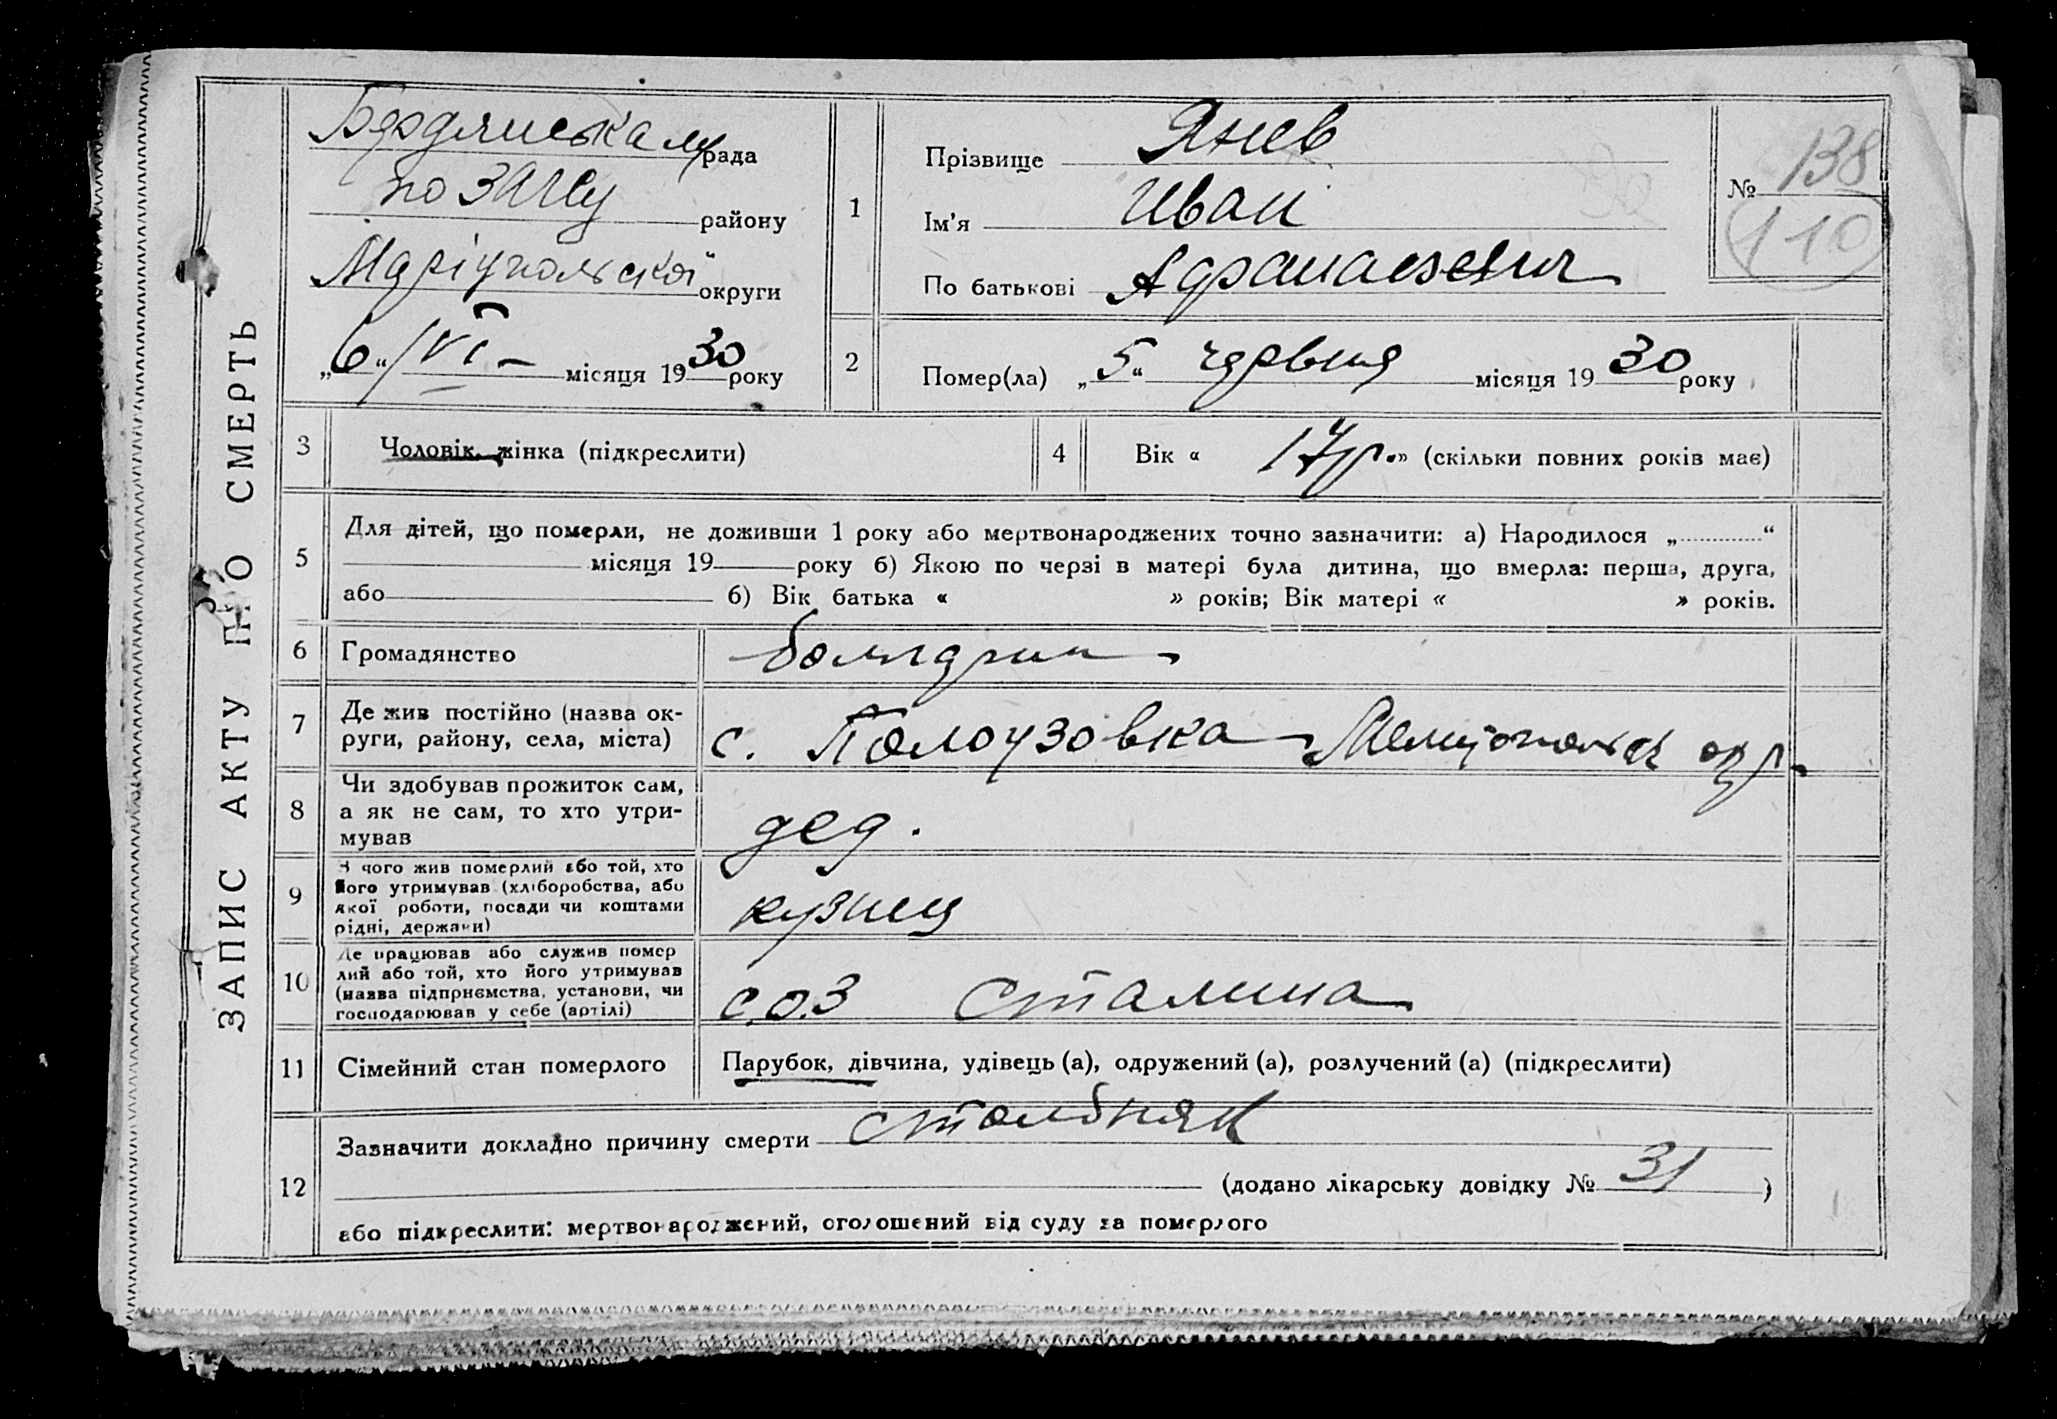 ЗАПИС АКТУ ПРО СМЕРТЬ
Бердянська м рада
по ЗАГСу району
Маріупольскої округи
„6“ /VI – місяця 1930 року
1
Прізвище Янев
Ім’я Иван
По батькові Афанасьевич
№ 138
110
2
Помер(ла) „5“ червня місяця 1930 року
3
Чоловік, жінка (підкреслити)
4
Вік « 17 р. » (скільки повних років має)
5
Для дітей, що померли, не доживши 1 року або мертвонароджених точно зазначити: а) Народилося „ “
місяця 19 року б) Якою по черзі в матері була дитина, що вмерла: перша, друга,
або б) Вік батька « » років; Вік матері « » років.
6
Громадянство болгарин
7
Де жив постійно (назва ок-
руги, району, села, міста)
с. Полоузовка Мелитопольск окр.
8
Чи здобував прожиток сам,
а як не сам, то хто утри-
мував
дед.
9
З чого жив померлий або той, хто
його утримував (хліборобства, або
якої роботи, посади чи коштами
рідні, держави)
кузнец
10
Де працював або служив помер
лий або той, хто його утримував
(назва підприємства, установи, чи
господарював у себе (артілі)
С.О.З Сталина
11
Сімейний стан померлого
Парубок, дівчина, удівець (а), одружений (а), розлучений (а) (підкреслити)
12
Зазначити докладно причину смерти столбняк
(додано лікарську довідку № 31 )
або підкреслити: мертвонароджений, оголошений від суду за померлого